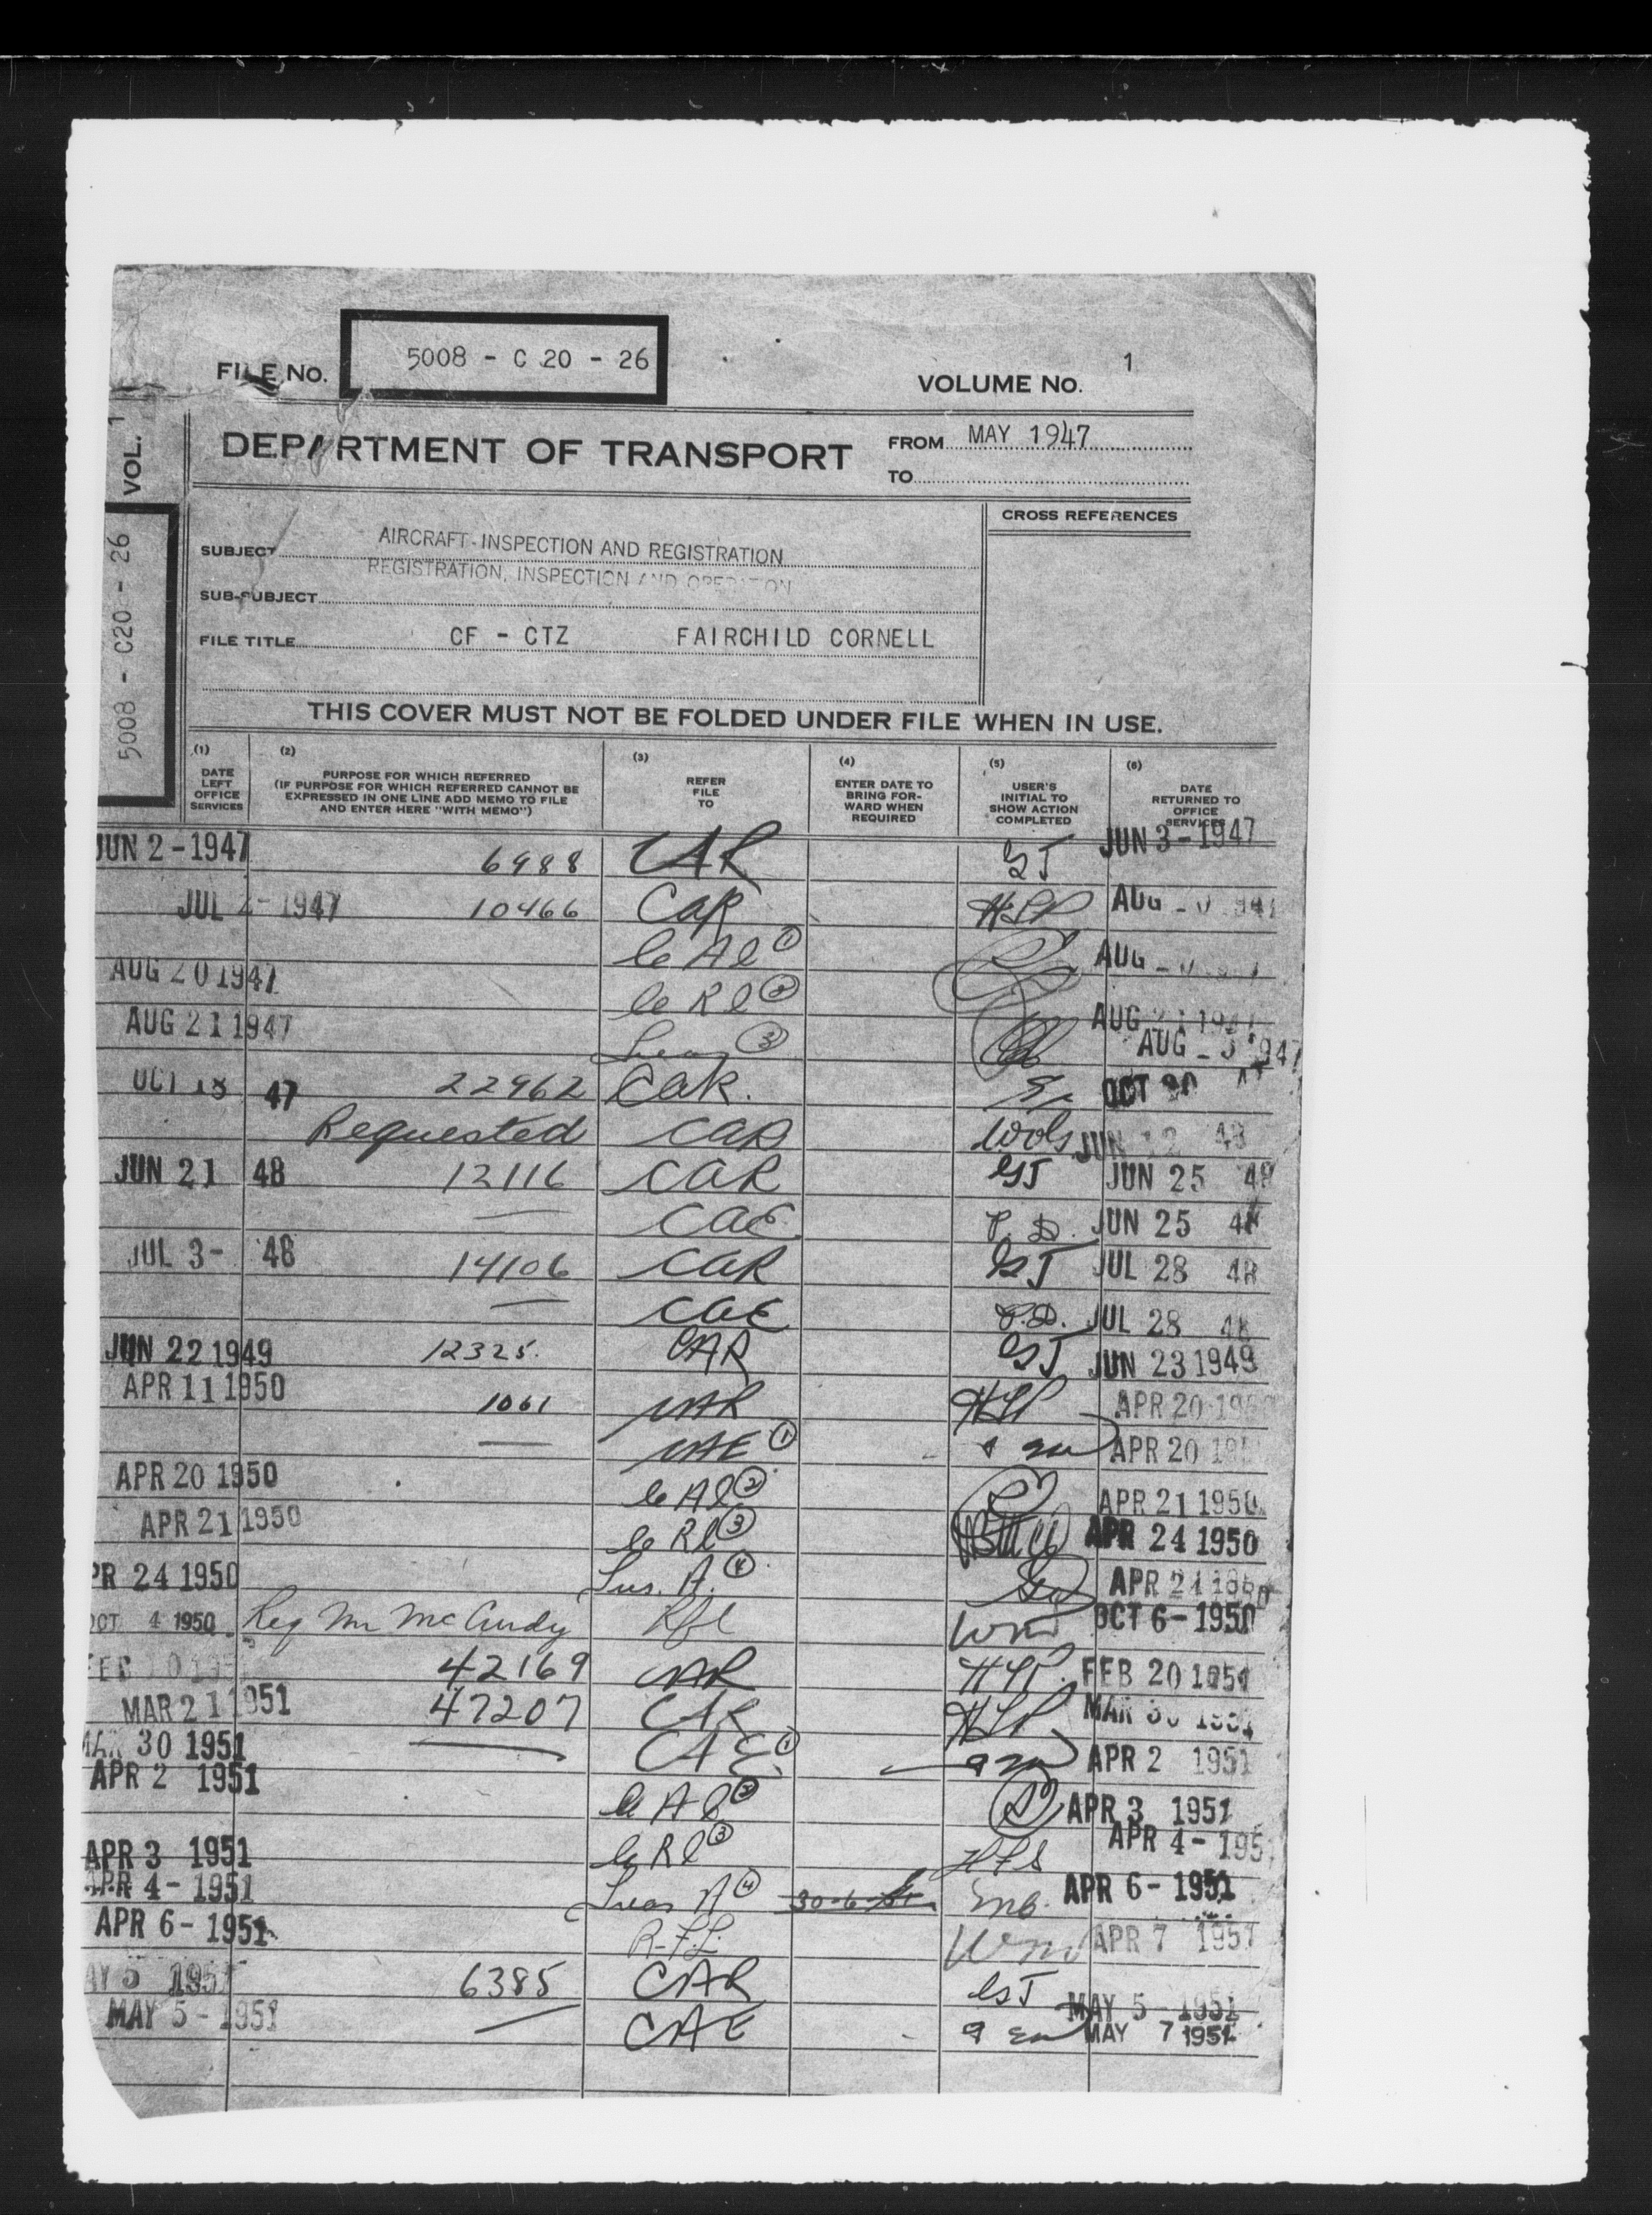 FILE No. 5008 - C 20 - 26
VOLUME No. 1
VOL. 1
5008 - C20 - 26
DEPARTMENT OF TRANSPORT
FROM MAY 1947
TO
CROSS REFERENCES
SUBJECT AIRCRAFT-INSPECTION AND REGISTRATION
REGISTRATION, INSPECTION AND OPERATION
SUB-SUBJECT
FILE TITLE CF - CTZ FAIRCHILD CORNELL
THIS COVER MUST NOT BE FOLDED UNDER FILE WHEN IN USE.
(1) DATE LEFT OFFICE SERVICES
(2) PURPOSE FOR WHICH REFERRED (IF PURPOSE FOR WHICH REFERRED CANNOT BE EXPRESSED IN ONE LINE ADD MEMO TO FILE AND ENTER HERE "WITH MEMO")
(3) REFER FILE TO
(4) ENTER DATE TO BRING FOR-WARD WHEN REQUIRED
(5) USER'S INITIAL TO SHOW ACTION COMPLETED
(6) DATE RETURNED TO OFFICE SERVICES
JUN 2 - 1947 6988 CAR JUN 3 - 1947
JUL 1947 10466 CAR HLP AUG
①  AUG
AUG 20 1947 ②
AUG 21 1947 ③ AUG 21 1947
AUG 1947
OCT 47 22962 CAR. OCT
Requested CAR JUN 12 48
JUN 21 48 12116 CAR GSJ JUN 25 48
CAE P.D. JUN 25 48
JUL 3 - 48 14106 CAR GSJ JUL 28 48
CAE P.D. JUL 28 48
JUN 22 1949 12325. CAR GSJ JUN 23 1949
APR 11 1950 1061 CAR HLP APR 20 1950
CAE ① APR 20 1950
APR 20 1950 ② APR 21 1950
APR 21 1950 ③ APR 24 1950
APR 24 1950 ④ APR 24 1950
OCT 4 1950 Req Mr McCurdy OCT 6 - 1950
FEB 42169 CAR HLP. FEB 20 1951
MAR 21 1951 47207 CAR HLP MAR 30 1951
MAR 30 1951 CAE ① APR 2 1951
APR 2 1951 ② APR 3 1951
APR 3 1951 ③ APR 4 - 195
APR 4 - 1951 ④ 30-6-51 APR 6 - 1951
APR 6 - 1951 R.F.L. APR 7 1951
MAY 5 1951 6385 CAR GSJ MAY 5 1951
MAY 5 - 1951 CAE MAY 7 1951